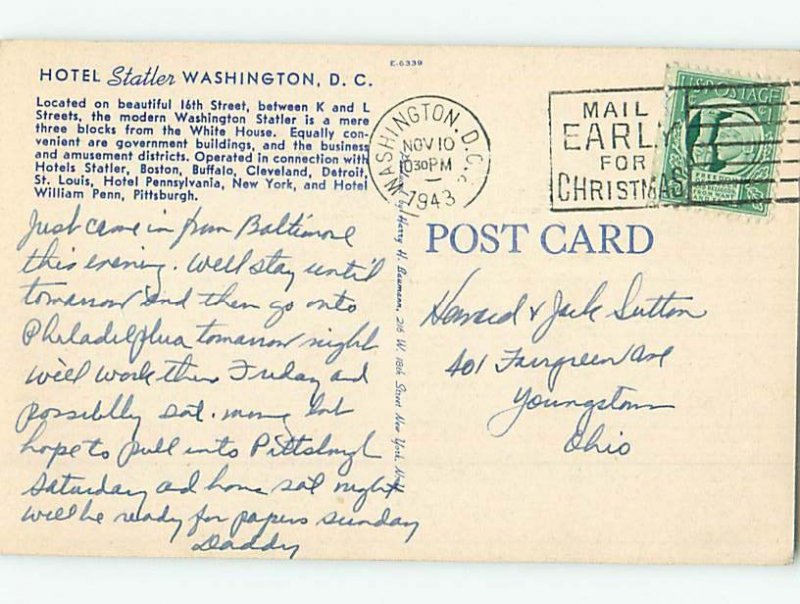 E-6339
HOTEL Statler WASHINGTON, D. C.
Located on beautiful 16th Street, between K and L
Streets, the modern Washington Statler is a mere
three blocks from the White House. Equally con-
venient are government buildings, and the business
and amusement districts. Operated in connection with
Hotels Statler, Boston, Buffalo, Cleveland, Detroit,
St. Louis, Hotel Pennsylvania, New York, and Hotel
William Penn, Pittsburgh.
Just came in from Baltimore
this evening. Well stay until
tomorrow and then go onto
Philadelphia tomorrow night
We'll work there Friday and
possiblly sat. morning but
hope to pull into Pittsburgh
Saturday and home sat night
will be ready for papers sunday
Daddy
by Harry H. Baumann, 216 W. 18th Street New York
WASHINGTON, D.C.
NOV 10
1030 PM
1943
MAIL
EARLY
FOR
CHRISTMAS
U.S. POSTAGE
POST CARD
Howard & Jack Sutton
401 Fairgreen Ave
Youngstown
Ohio